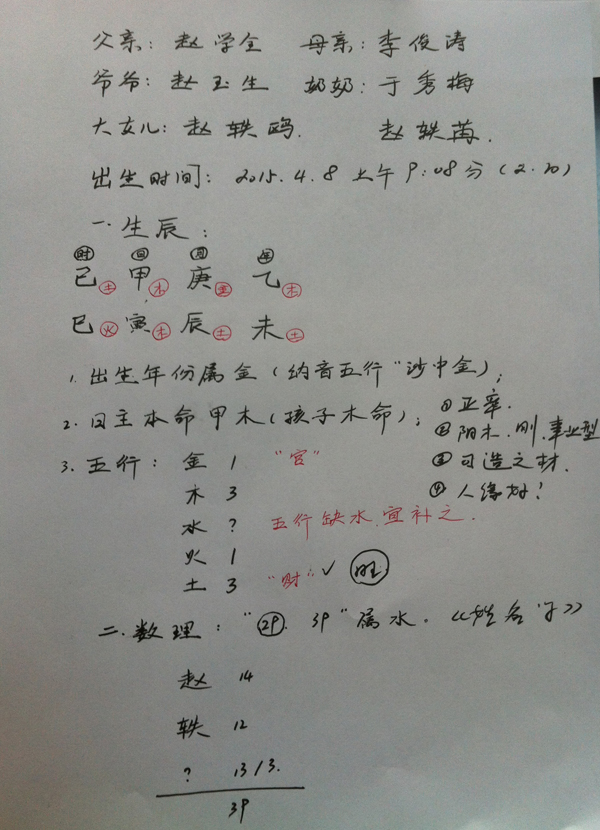 父亲：赵学全 母亲：李俊涛
爷爷：赵玉生 奶奶：于秀梅
大女儿：赵轶鸥. 赵轶苒.
出生时间：2015.4.8 上午9:08分(2.20)
一.生辰：
时 日 月 年
己土 甲木 庚金 乙木
巳火 寅木 辰土 未土
1.出生年份属金(纳音五行"沙中金)；
2.日主本命甲木(孩子木命)；①正率.
②阳木.刚.事业型
③可造之材.
④人缘好？
3.五行：金 1 "官"
木 3
水 ? 五行缺水.宜补之.
火 1
土 3 "财"✓ 旺
二.数理："29. 39"属水。《姓名学》
赵 14
轶 12
? 13/3.
39